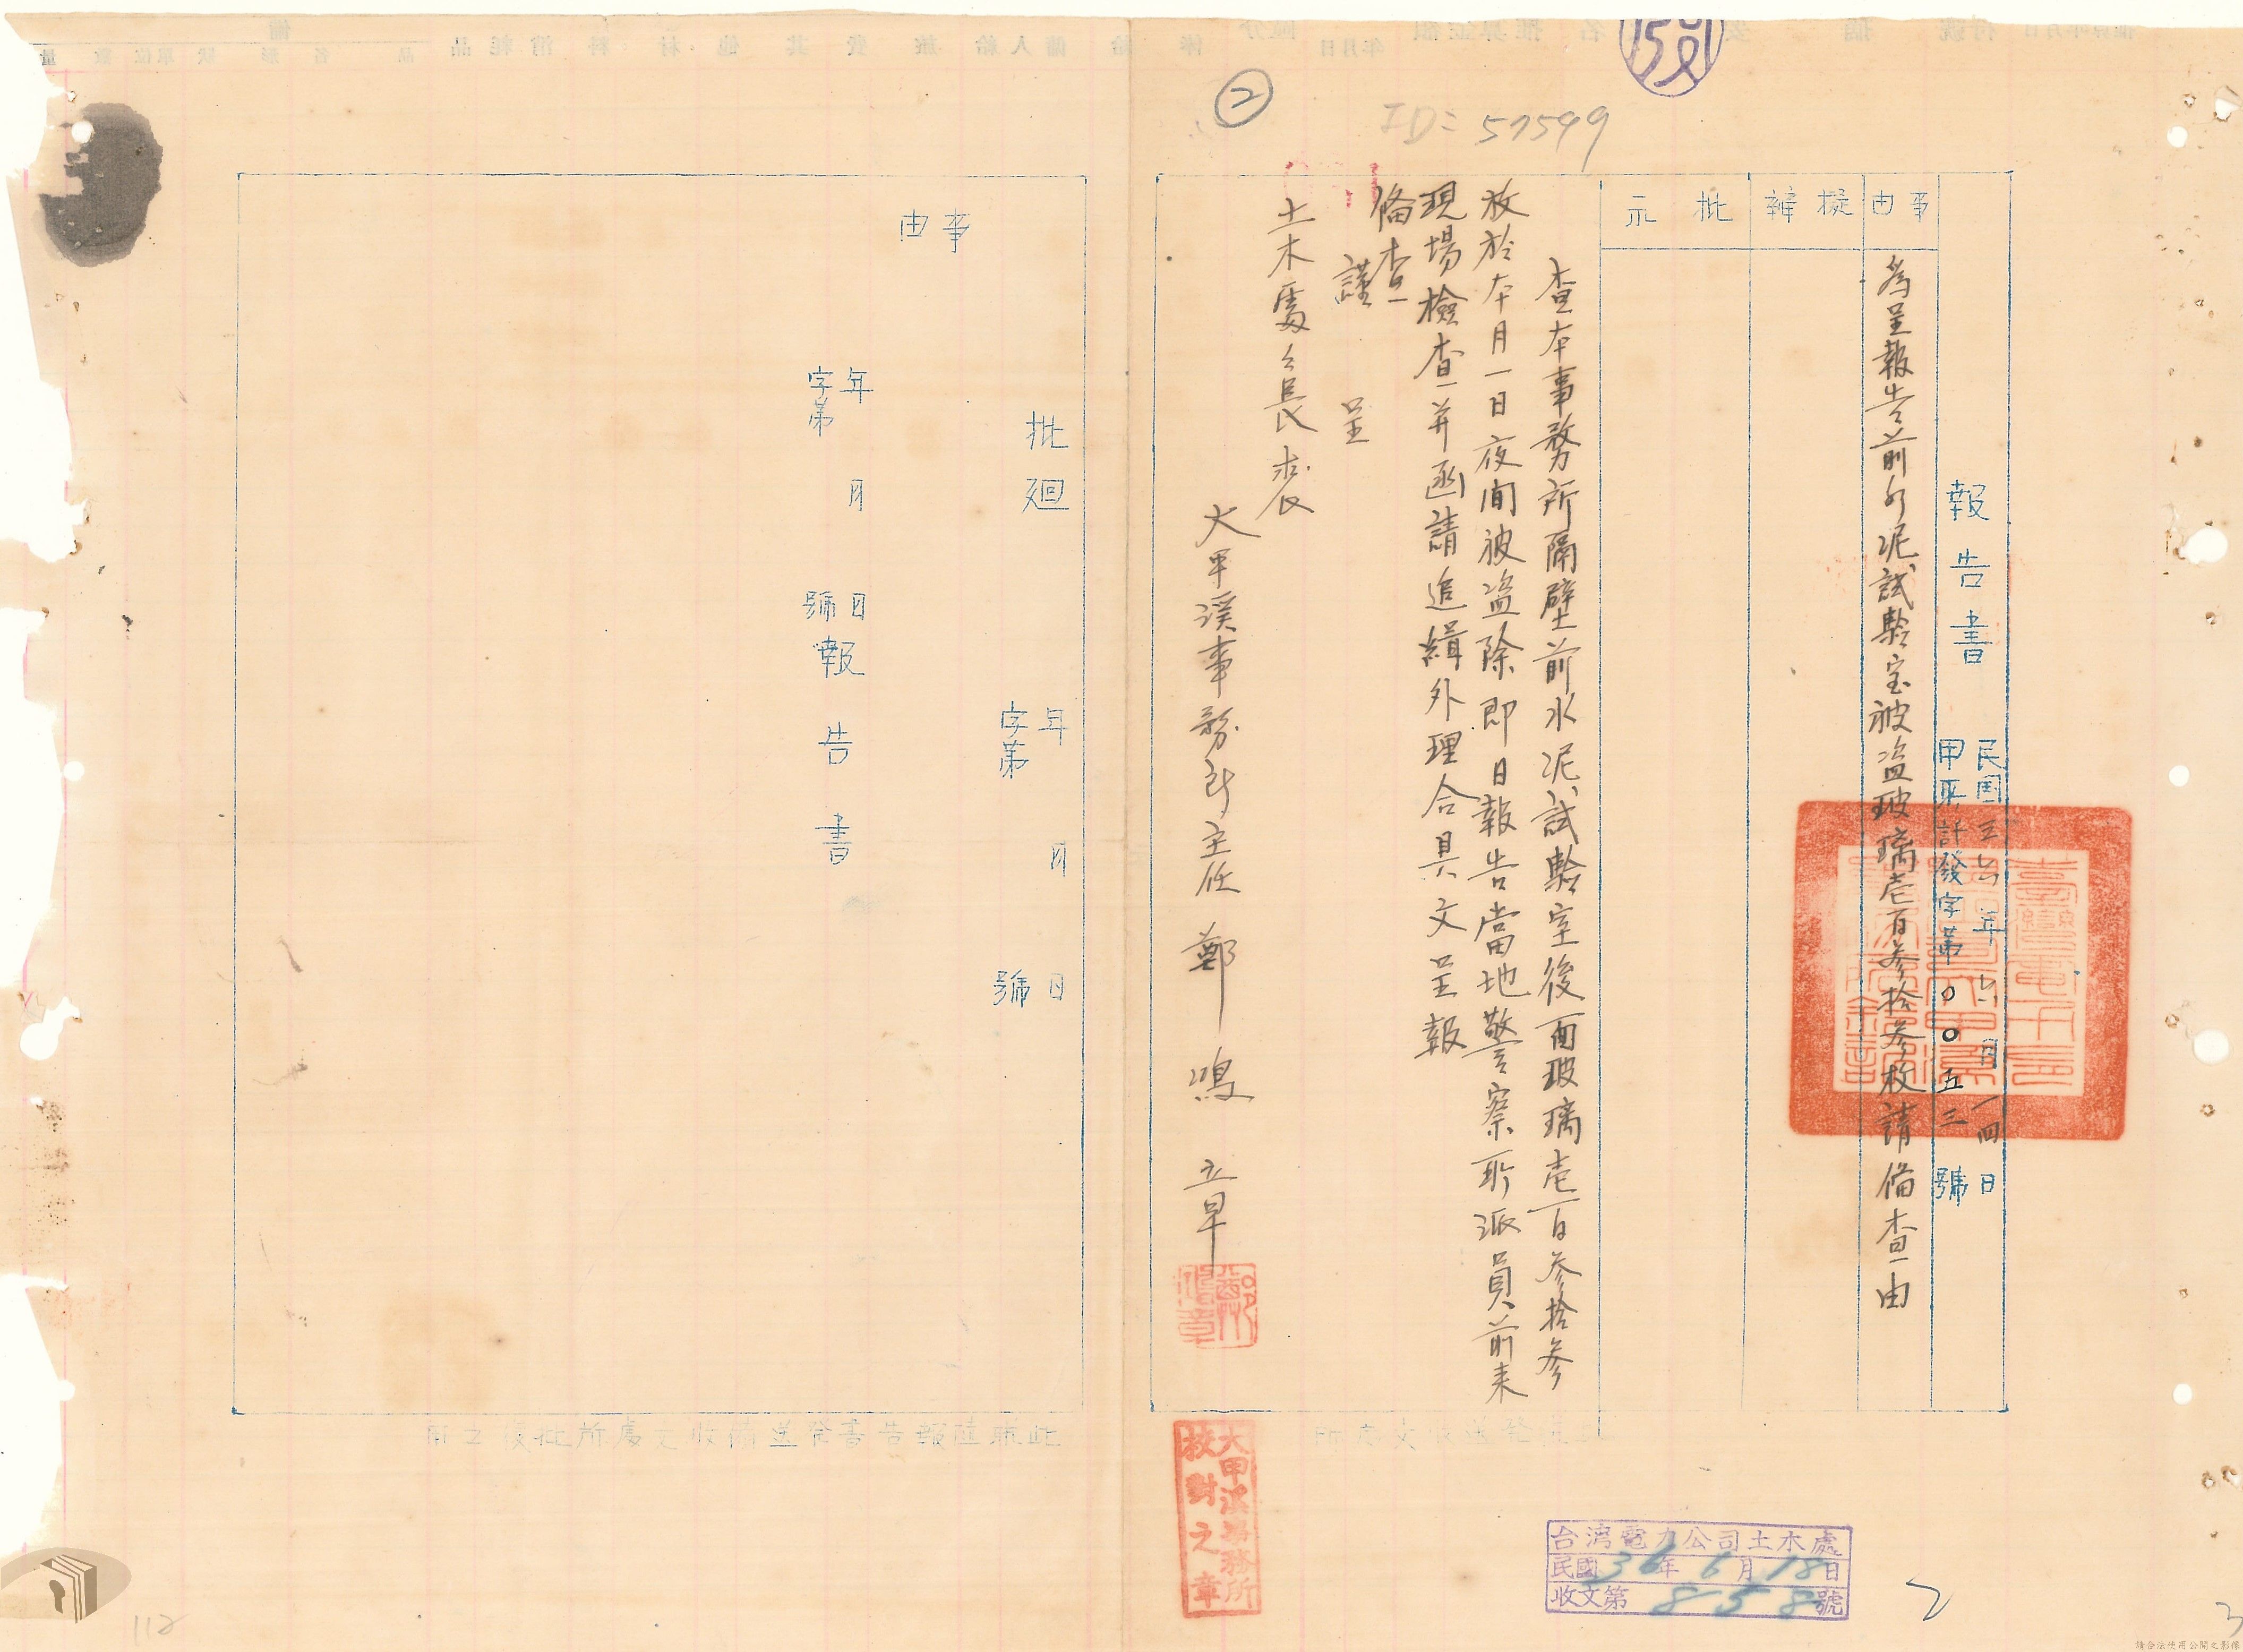 ID=57599
②
報告書
民國三六年六月一四日
甲采計發字第〇〇五三號
事由
為呈報告前水泥試驗室被盜玻璃壱百參拾參枚請俻查由
擬辦
批示
查本事務所隔壁前水泥試驗室後面玻璃壱百參拾參
枚於本月一日夜间被盜除即日報告當地警察所派員前来
現場檢查并函請追緝外理合具文呈報
俻查
謹
呈
土木處處長裘
大甲溪事務所主任鄭鴻章
大甲溪事務所
校對之章
台湾電力公司土木處
民國36年6月18日
收文第858號
批廻
年月日
字第號
年月日
字第號
報告書
事由
此聯隨報告書發送備收文處所批復之用
112
2
3
請合法使用公開之影像